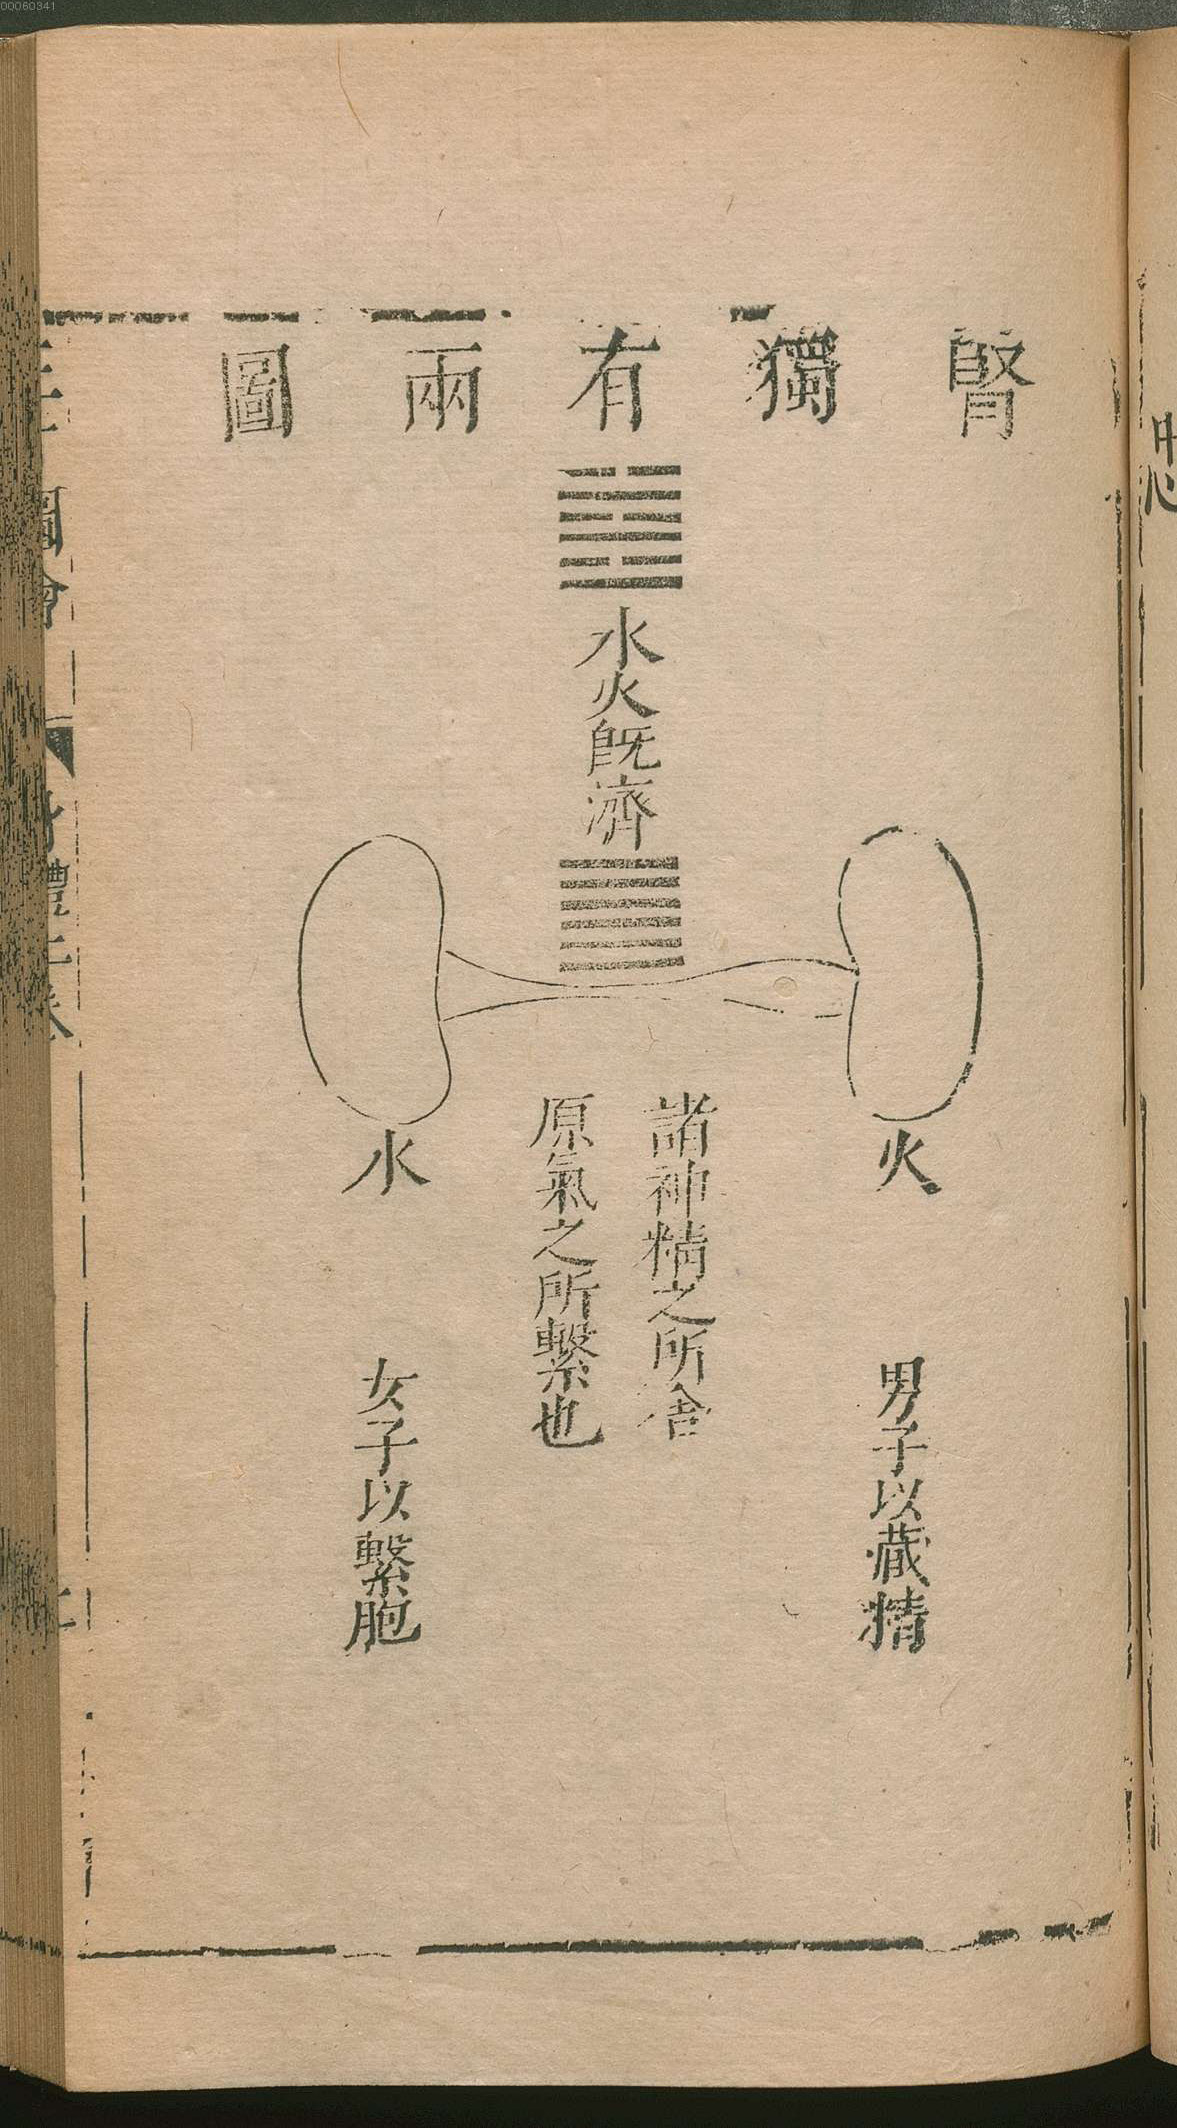 00060341
腎獨有兩圖
水火既濟
火
男子以藏精
諸神精之所舍
原氣之所繫也
水
女子以繫胞
圖會
體